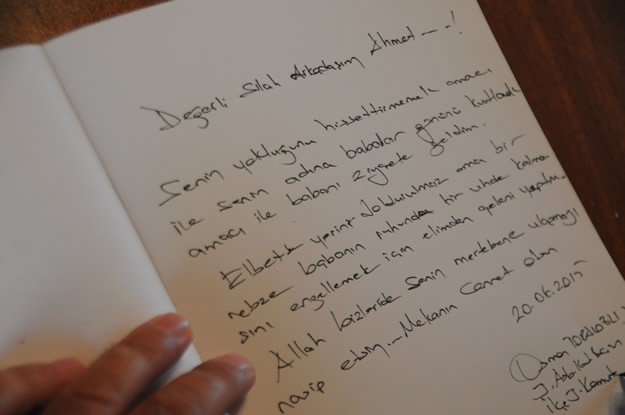 Değerli Silah Arkadaşım Ahmet --- !
Senin yokluğunu hissettirmemek amacı
ile senin adına babalar gününü kutlamak
amacı ile babanı ziyarete geldim.
Elbette yerini doldurulmaz ama bir
nebze babanın ruhunda bir ukde kalma
sını engellemek için elimden geleni yapatım.
Allah bizleride senin mertebene ulaşmayı
nasip etsin.-- Mekanın Cennet olsun
20.06.2015
Osman
J.
İlçe J. Komutanı